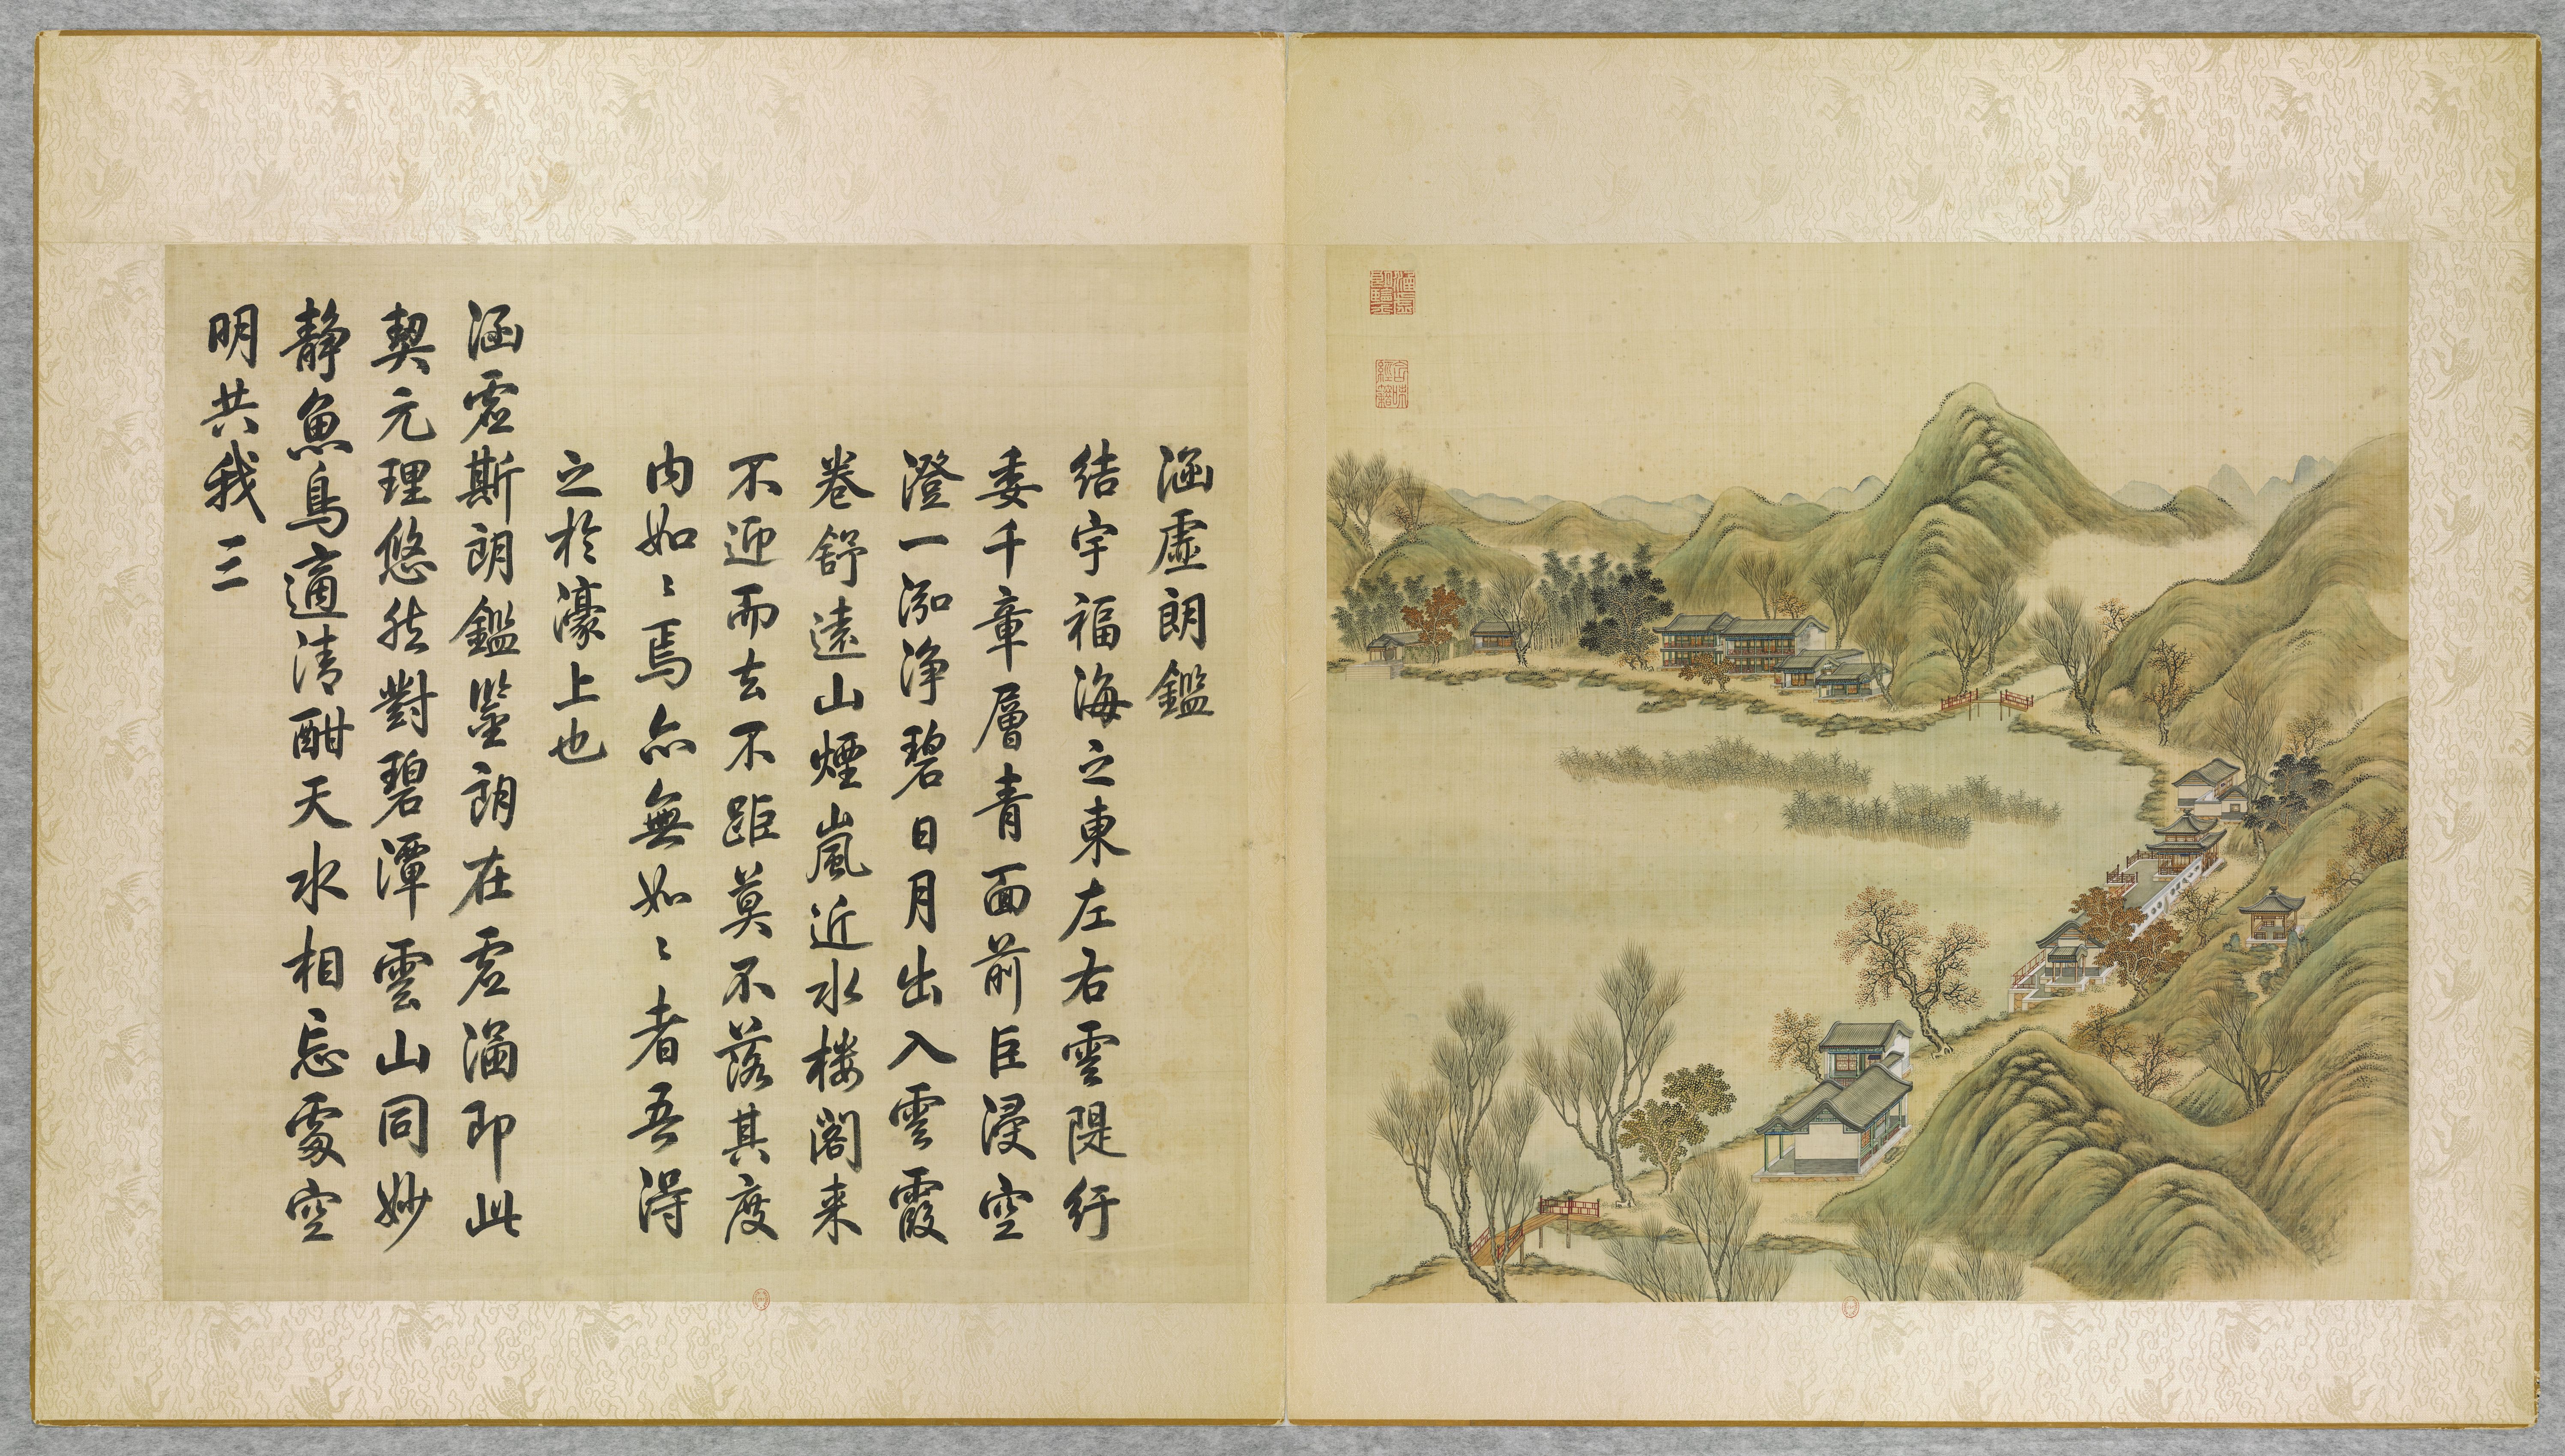 涵虛朗鑑
結宇福海之東左右雲隄紆
委千章層青面前巨浸空
澄一泓淨碧日月出入雲霞
卷舒遠山煙嵐近水樓閣来
不迎而去不距莫不落其度
内如〻焉亦無如〻者吾得
之於濠上也
涵虛斯朗鑑鑒朗在虛涵即此
契元理悠然對碧潭雲山同妙
静魚鳥適清酣天水相忘處空
明共我三
含味經籍